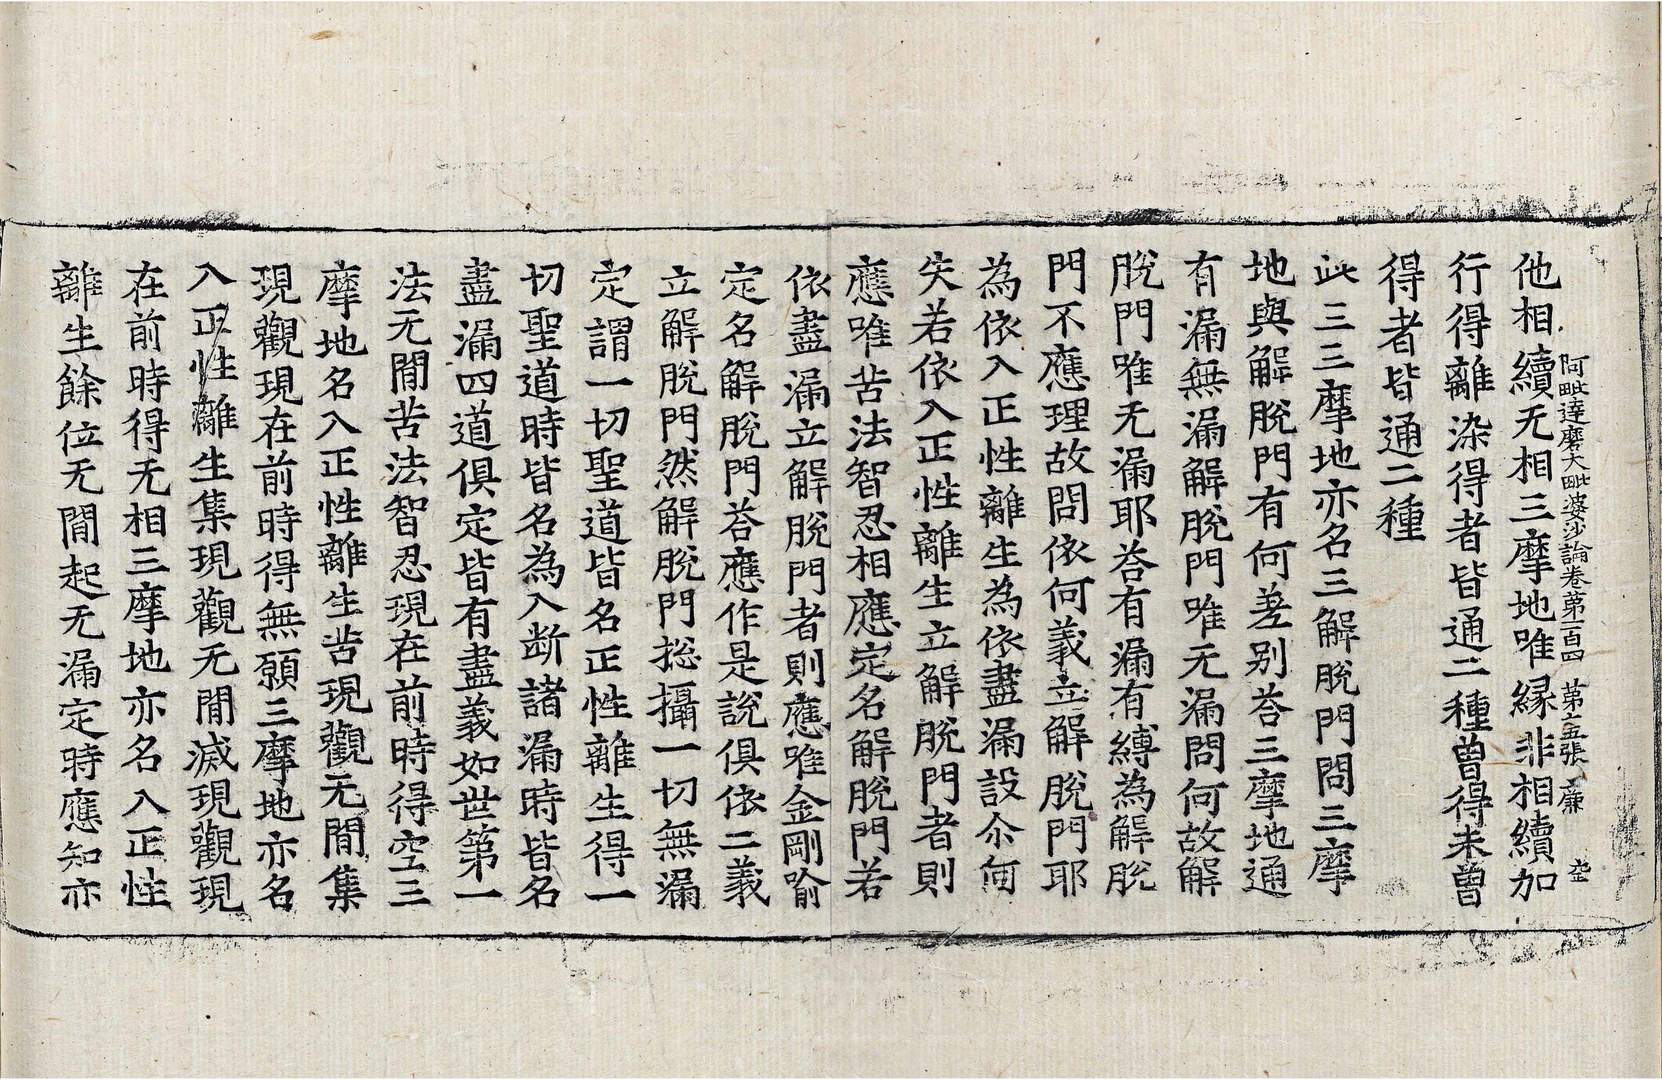 阿毗達磨大毗婆沙論卷第一百四　第五張　廉
他相續无相三摩地唯緣非相續加
行得離染得者皆通二種曾得未曾
得者皆通二種
此三三摩地亦名三解脫門問三摩
地與解脫門有何差别荅三摩地通
有漏無漏解脫門唯无漏問何故解
脫門唯无漏耶荅有漏有縛為解脫
門不應理故問依何義立解脫門耶
為依入正性離生為依盡漏設尒何
失若依入正性離生立解脫門者則
應唯苦法智忍相應定名解脫門若
依盡漏立解脫門者則應唯金剛喻
定名解脫門荅應作是說俱依二義
立解脫門然解脫門捴攝一切無漏
定謂一切聖道皆名正性離生得一
切聖道時皆名為入断諸漏時皆名
盡漏四道俱定皆有盡義如世第一
法无閒苦法智忍現在前時得空三
摩地名入正性離生苦現觀无閒集
現觀現在前時得無願三摩地亦名
入正性離生集現觀无閒滅現觀現
在前時得无相三摩地亦名入正性
離生餘位无閒起无漏定時應知亦